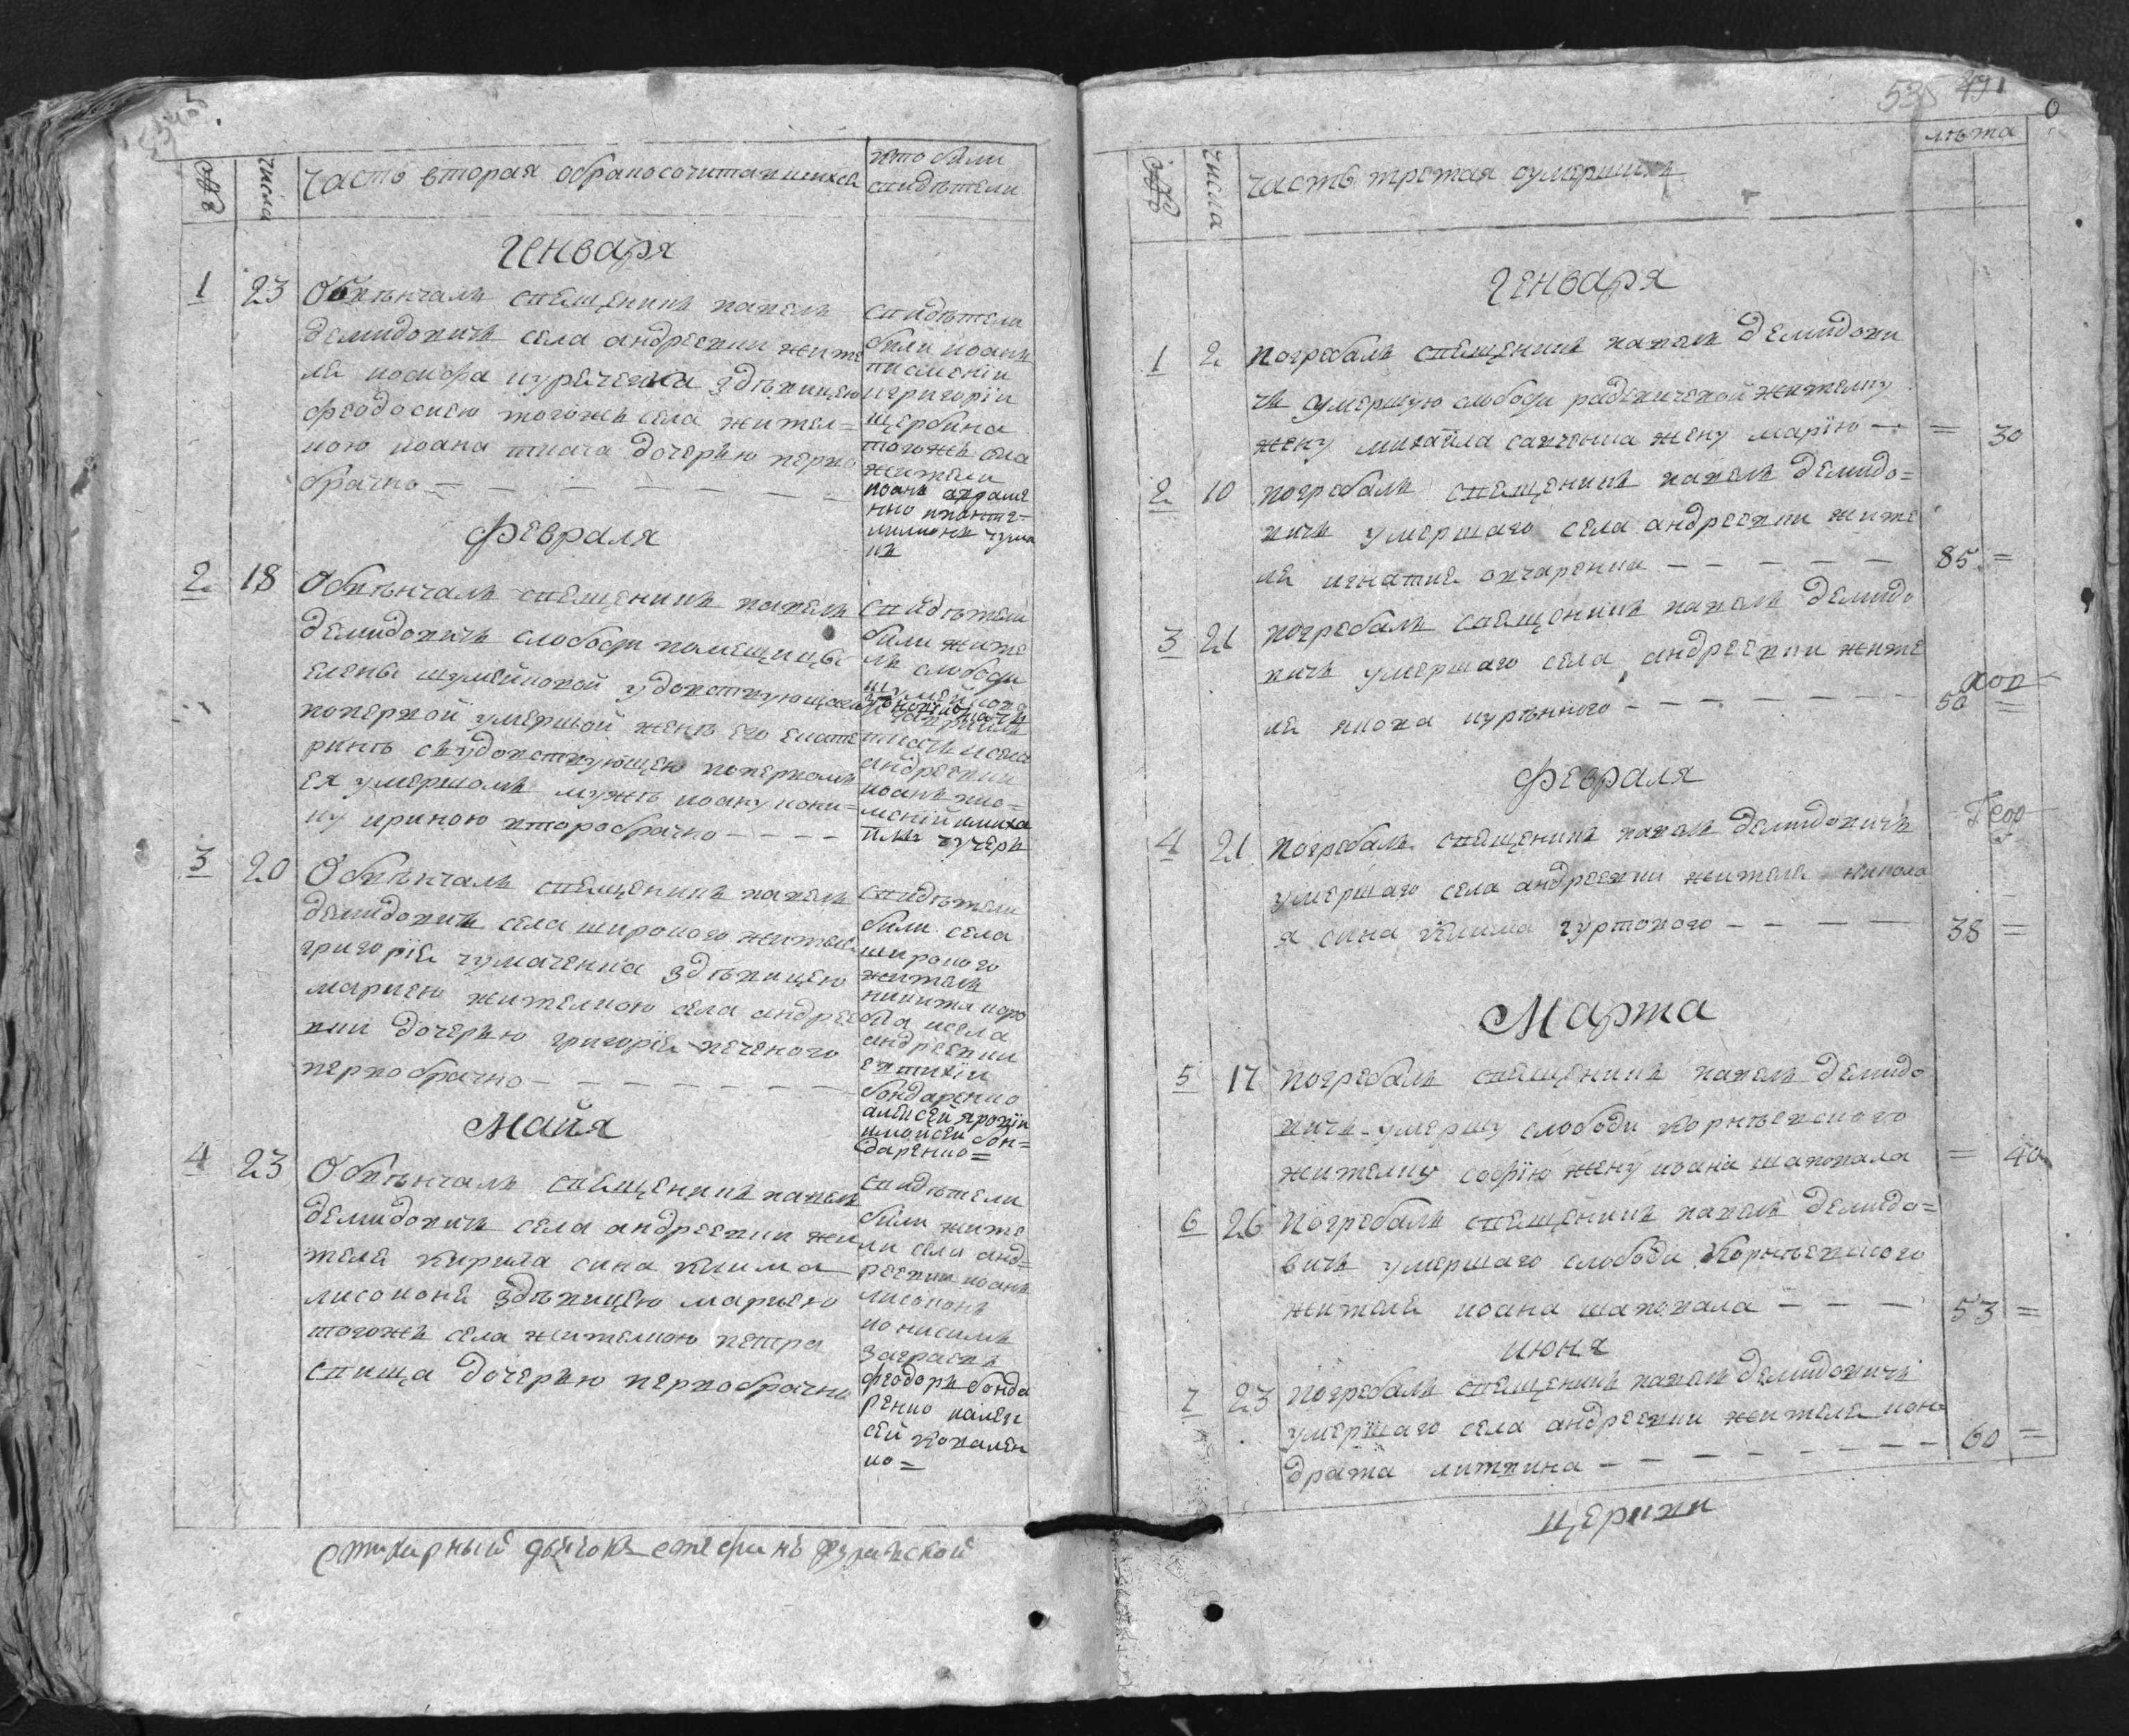 числа
часть вторая о бракосочитавшихся
кто били
свидѣтели
Генваря
1 23 Обвѣнчалъ священикъ павелъ
демидовичь села андреевки жите
ля иосифа куречка здѣвицею
феодосиею тогожъ села жител=
кою иоана ткача дочерью перво
брачно
свидѣтели
били иоанъ
писменїй
игригорїй
щербина
тогожъ села
жители
иоанъ авраме
нко
Февраля
2 18 Обвѣнчалъ священикъ павелъ
демидовичь слободи помещици
елени шумейковой удовствующаго
поперной умершой женѣ его екате
ринѣ съ удовствующею поперномъ
ея умершомъ мужѣ иоану кони=
ку ириною второбрачно
свидѣтели
били жите
лѣ слободи
ткачь исела
андреевки
иоанъ
кучеръ
3 20 Обвѣнчалъ священикъ павелъ
демидовичь села широкого жителя
григорїя чумаченка здѣвицею
мариею жителкою села андрее
вки дочерью григорїя печеного
первобрачно
свидѣтели
били села
широкого
жителъ
никита коро
бка исела
андреевки
евтихїй
бондаренко
алексей яровїй
имойсей бон=
даренко=
Майя
4 23 Обвѣнчалъ священикъ павелъ
демидовичь села андреевки жи
теля кирила сина клима
лисоконя здѣвицею мариею
тогожъ села жителкою петра
свища дочерью первобрачно
свидѣтели
били жите
ли села анд=
реевки иоанъ
лисоконь
феодоръ бонда
ренко иалек
сей ковален
ко=
535
числа
часть третая оумершихъ
лѣта
Генваря
1 2 погребалъ священикъ павелъ демидови
чь умершую слободи жителку
жену михайла савченка жену марїю = 30
2 10 погребалъ священикъ павелъ демидо=
вичь умершаго села андреевки жите
ля игнатия овчаренка 85 =
3 21 погребалъ священикъ павелъ демидо
вичь умершаго села андреевки жите
ля якова курѣнного 50 =
Февраля
4 21 погребалъ священикъ павелъ демидовичь
умершаго села андреевки жителя никола
я сина клима гуртового 38 =
Марта
5 17 погребалъ священикъ павелъ демидо
вичь умершу слободи корнѣевского
жителку софїю жену иоана шаповала = 40
6 26 погребалъ священикъ павелъ демидо=
вичь умершаго слободи корнѣевского
жителя иоана шаповала 53 =
июня
7 23 погребалъ священикъ павелъ демидовичь
умершаго села андреевки жителя кон=
драта литвина 60 =
церкви